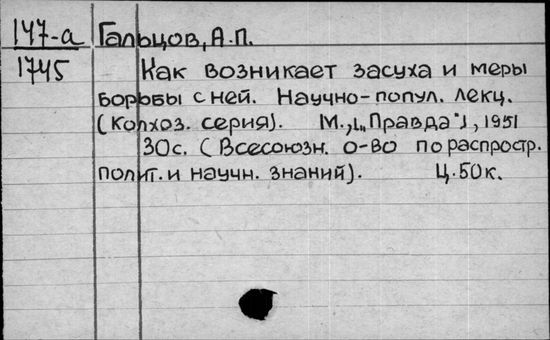 147-а Гальцов, А.П.
1745 Как возникает засуха и меры
борьбы с ней. Научно-попул. лекц.
(Колхоз. серия). М., [„Правда"], 1951
30с. (Всесоюзн. о-во по распростр.
полит. и научн. знаний). Ц. 50к.